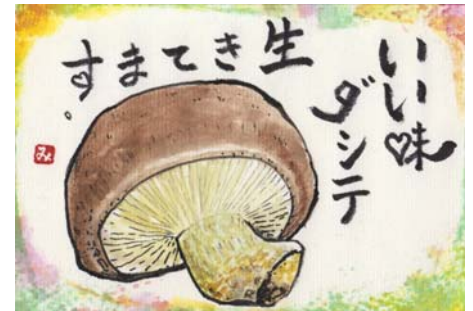 いい味
ダシテ
生きてます。
み